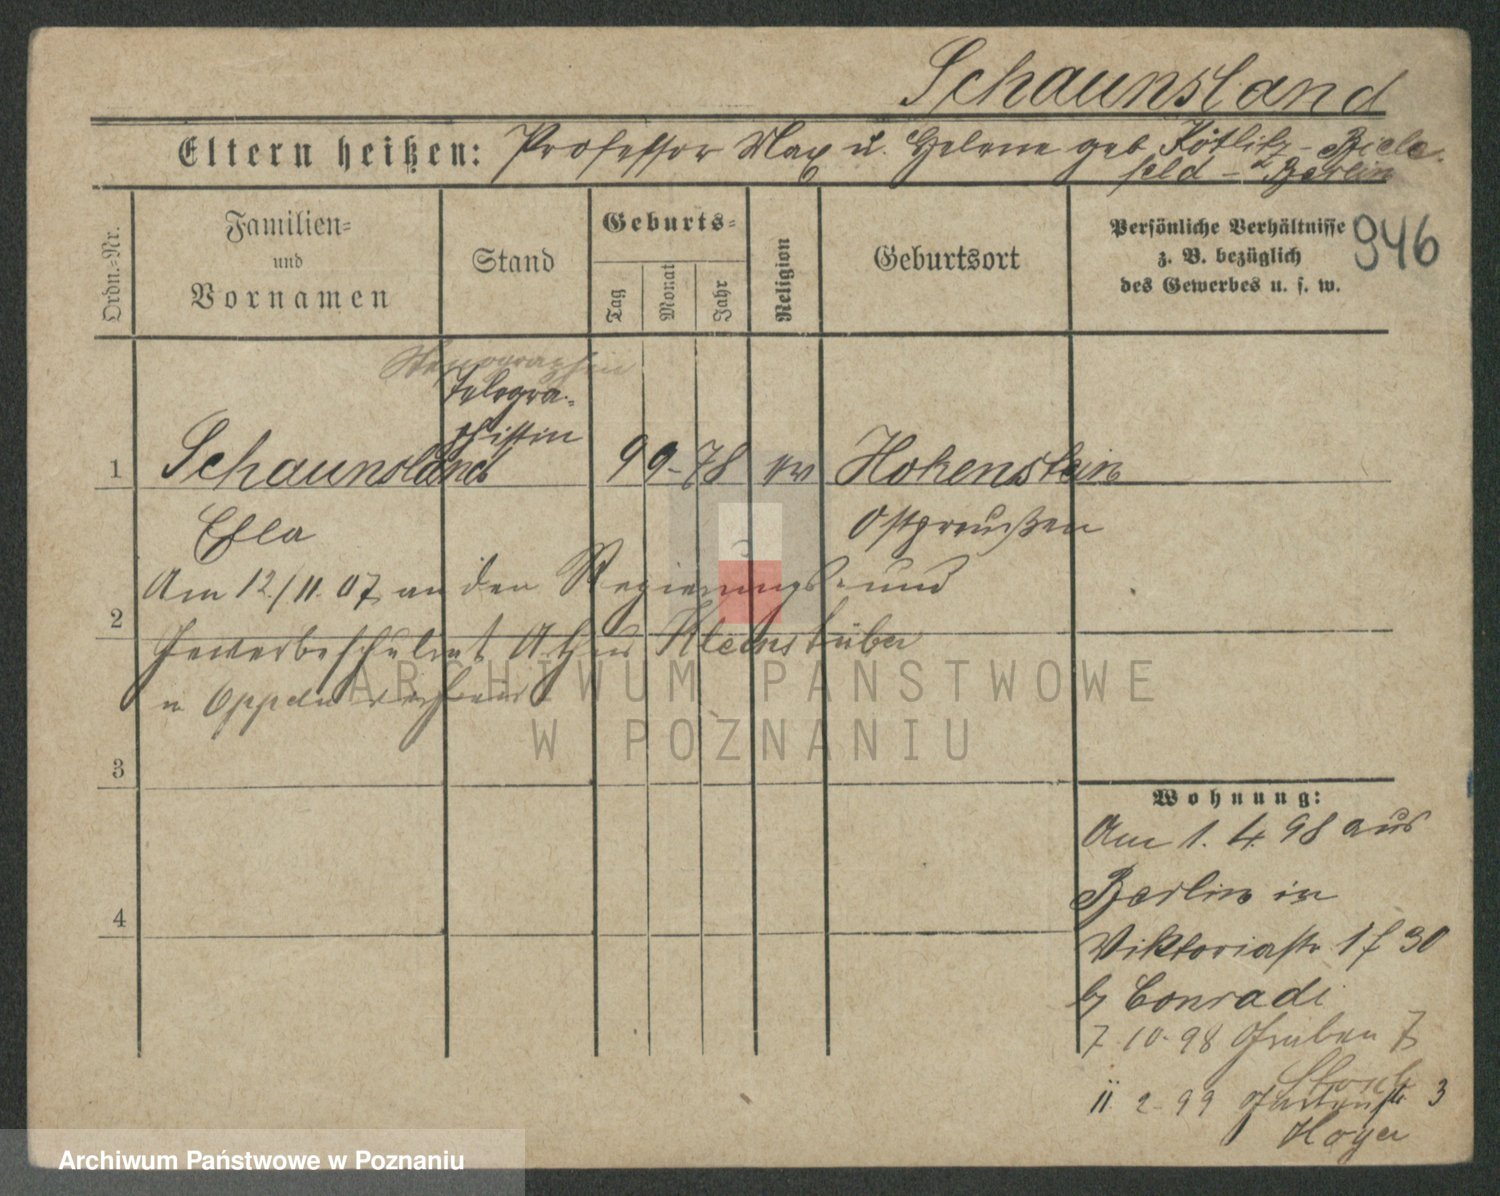 Schaunsland
Eltern heißen: Professor Max u. Helene geb. Kötlitz - Biele-
feld - Berlin
Ordn.-Nr.
Familien-
und
Vornamen
Stand
Geburts-
Tag
Monat
Jahr
Religion
Geburtsort
Persönliche Verhältnisse
z. B. bezüglich
des Gewerbes u. s. w.
946
Stenographin
Telegra-
phistin
1 Schaunsland 9 9-78 ev Hohenstein
Ella Ostpreußen
Am 12./11. 07 an den Regierungs- und
2
Gewerbeschulrat Kleinstüber
in Oppeln
ARCHIWUM PAŃSTWOWE
W POZNANIU
3
Wohnung:
Am 1. 4. 98 aus
Berlin in
4
Viktoriastr 1 f 30
by Conradi
7 10. 98 Gruben 7
11. 2-99 Gartenstr 3
Hoyer
Archiwum Państwowe w Poznaniu